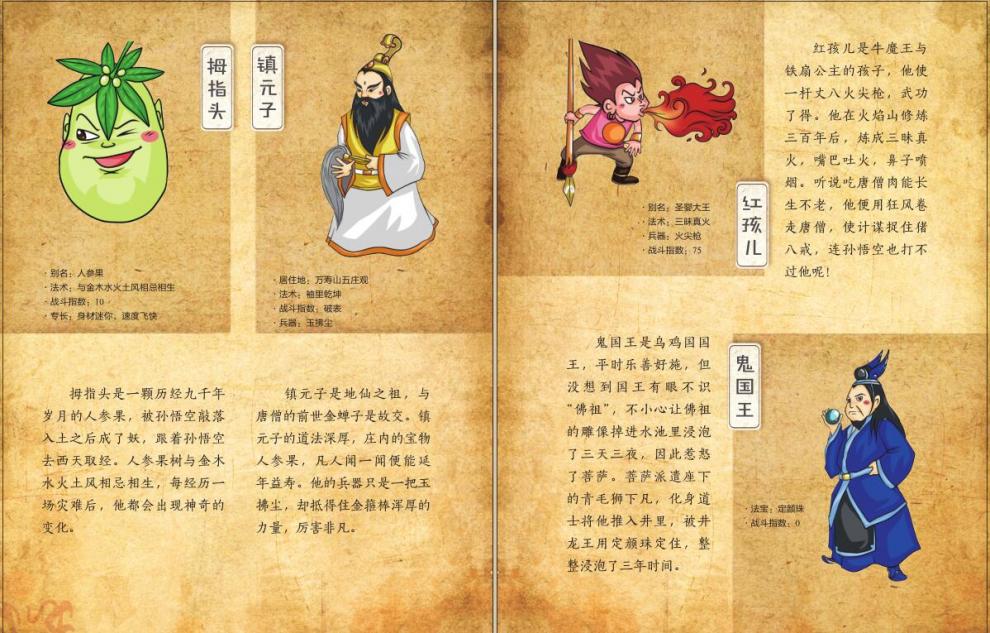 拇指头
· 别名：人参果
· 法术：与金木水火土风相忌相生
· 战斗指数：10
· 专长：身材迷你，速度飞快
拇指头是一颗历经九千年
岁月的人参果，被孙悟空敲落
入土之后成了妖，跟着孙悟空
去西天取经。人参果树与金木
水火土风相忌相生，每经历一
场灾难后，他都会出现神奇的
变化。
镇元子
· 居住地：万寿山五庄观
· 法术：袖里乾坤
· 战斗指数：破表
· 兵器：玉拂尘
镇元子是地仙之祖，与
唐僧的前世金蝉子是故交。镇
元子的道法深厚，庄内的宝物
人参果，凡人闻一闻便能延
年益寿。他的兵器只是一把玉
拂尘，却抵得住金箍棒浑厚的
力量，厉害非凡。
红孩儿
· 别名：圣婴大王
· 法术：三昧真火
· 兵器：火尖枪
· 战斗指数：75
红孩儿是牛魔王与
铁扇公主的孩子，他使
一杆丈八火尖枪，武功
了得。他在火焰山修炼
三百年后，炼成三昧真
火，嘴巴吐火，鼻子喷
烟。听说吃唐僧肉能长
生不老，他便用狂风卷
走唐僧，使计谋捉住猪
八戒，连孙悟空也打不
过他呢！
鬼国王
鬼国王是乌鸡国国
王，平时乐善好施，但
没想到国王有眼不识
“佛祖”，不小心让佛祖
的雕像掉进水池里浸泡
了三天三夜，因此惹怒
了菩萨。菩萨派遣座下
的青毛狮下凡，化身道
士将他推入井里，被井
龙王用定颜珠定住，整
整浸泡了三年时间。
· 法宝：定颜珠
· 战斗指数：0